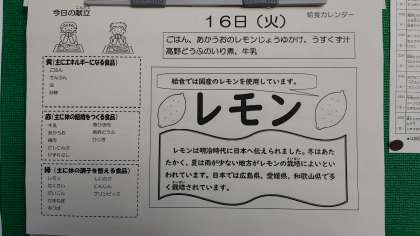 今日の献立
16日（火）
給食カレンダー
ごはん、あかうおのレモンじょうゆかけ、うすくず汁
高野どうふのいり煮、牛乳
黄（主にエネルギーになる食品）
ごはん
でんぷん
油
砂糖
赤（主に体の組織をつくる食品）
牛乳
あかうお
鶏肉
緑（主に体の調子を整える食品）
レモン
しいたけ
にんじん
グリンピース
たまねぎ
給食では国産のレモンを使用しています。
レモン
レモンは明治時代に日本へ伝えられました。冬はあた
たかく、夏は雨が少ない地方がレモンの栽培によいとい
われています。日本では広島県、愛媛県、和歌山県で多
く栽培されています。